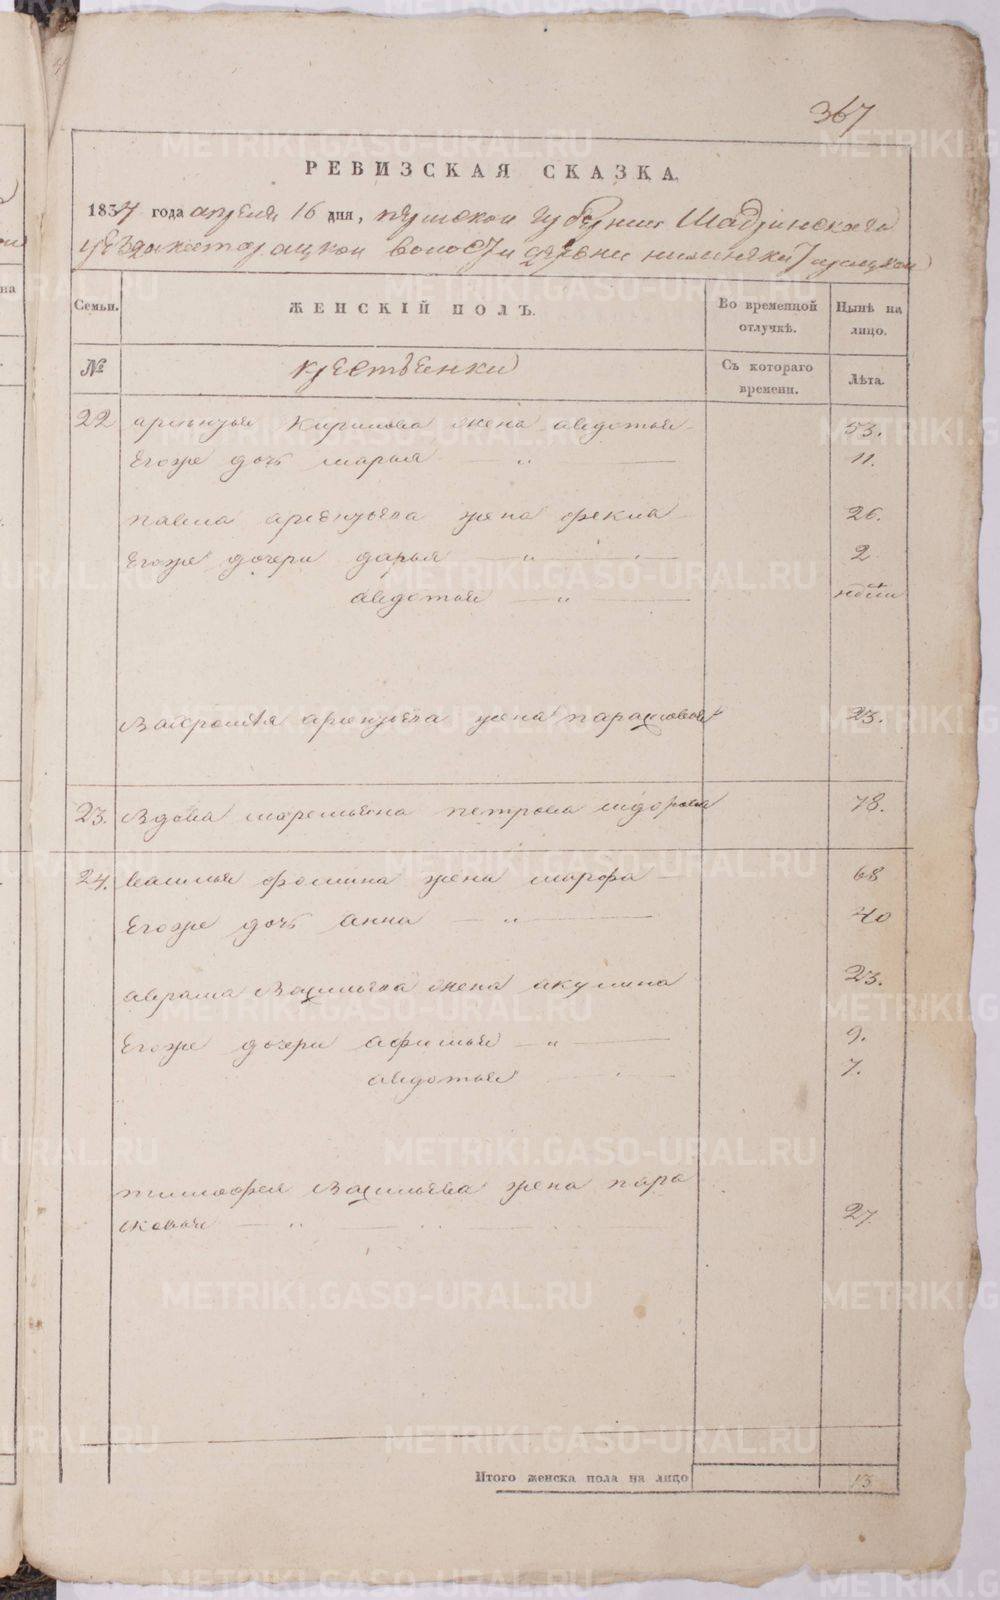 367
РЕВИЗСКАЯ СКАЗКА
1834 года апреля 16 дня, пермской губернии Шадринскаго
уезда волости деревни
Семьи. ЖЕНСКІЙ ПОЛЪ. Во временной отлучкѣ. Нынѣ на лицо.
№ крестьенки Съ котораго времени. Лѣта.
22 арентья Кирилова жена авдотья 53.
Егоже дочь марья — „ — 11.
павла жена фекла 26.
Егоже дочери дарья — „ — 2
авдотья — „ —
жена парасковья 23.
23. Вдова петрова 78.
24. василья фомина жена марфа 68
Егоже дочь анна — „ — 40
аврама Васильева жена акулина 23.
Егоже дочери афимья — „ — 9.
авдотья — 7.
тимофея Васильева жена пара
сковья — „ — 27
Итого женска пола на лицо 13
METRIKI.GASO-URAL.RU